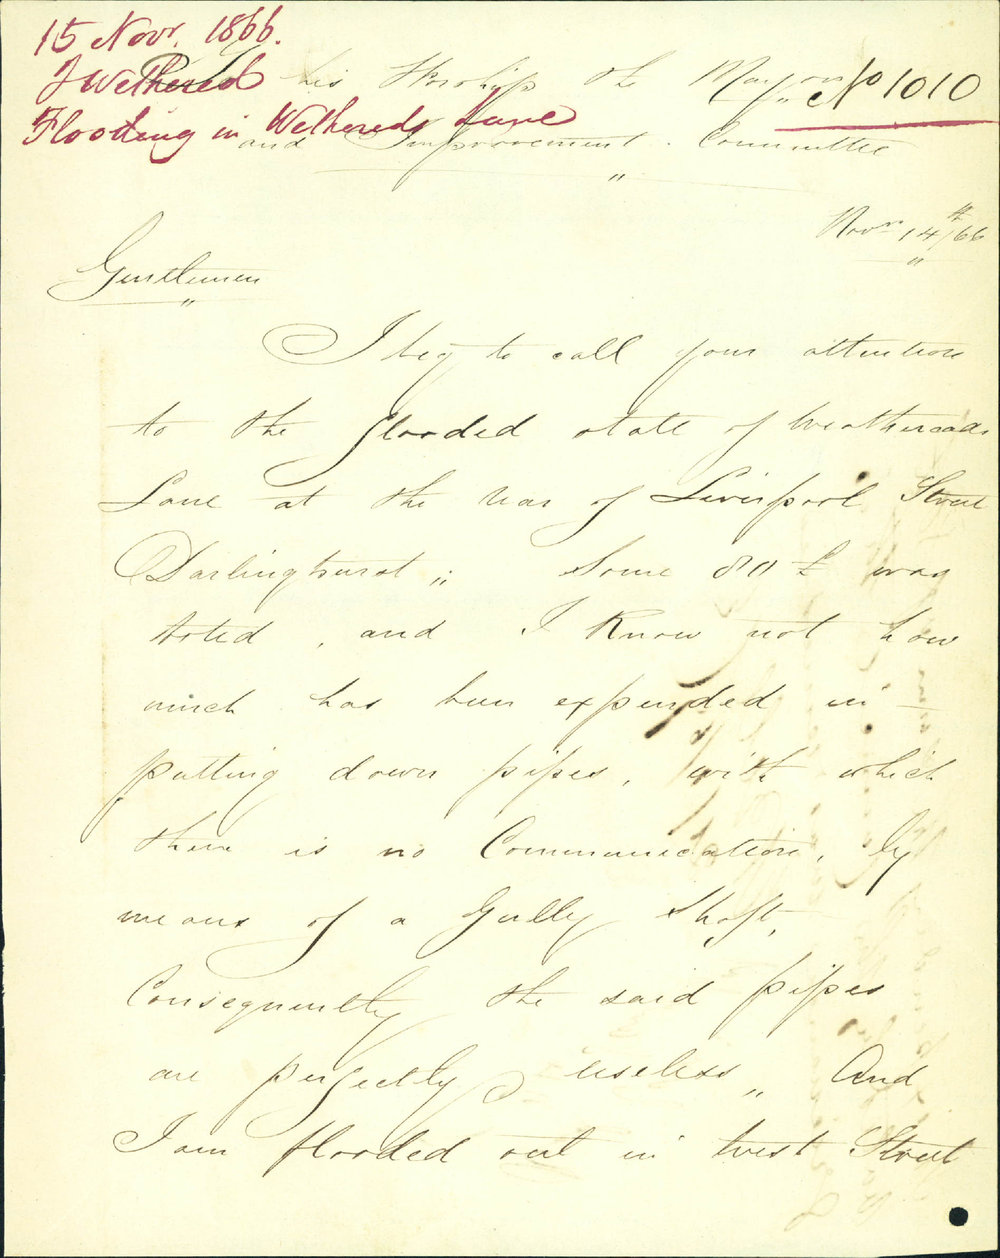 15 Novr. 1866.
J Wethered
Flooding in Wethereds Lane
No 1010
To his Worship the Mayor
and Improvement Committee
Novr 14th/66
Gentlemen
I beg to call your attention
to the flooded state of Weathereds
Lane at the rear of Liverpool Street
Darlinghurst ; Some 80 £ was
Voted , and I Know not how
much has been expended in
putting down pipes, with which
there is no Communication, by
means of a Gully Shaft,
Consequently the said pipes
are perfectly useless ,, And
I am flooded out in West Street